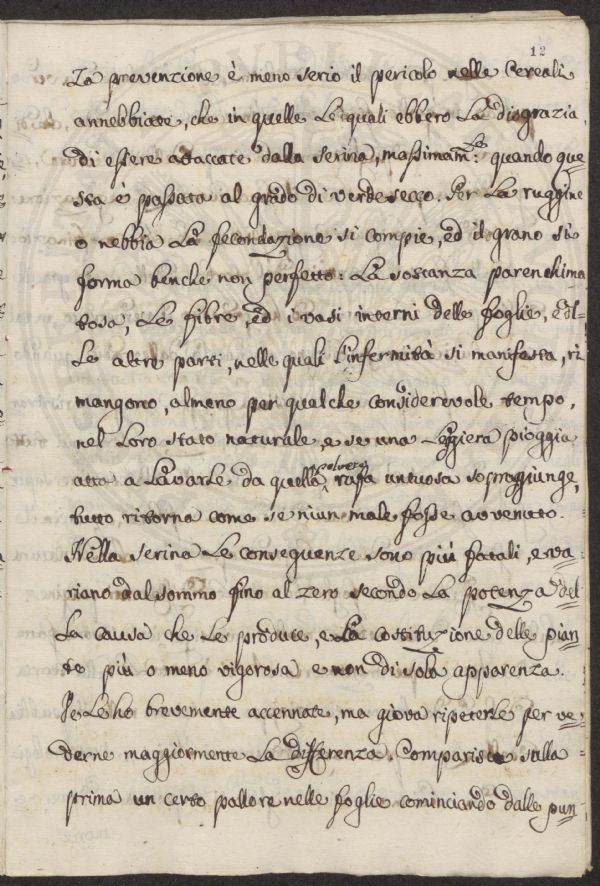 12
La prevenzione è meno serio il pericolo nelle Cereali
annebbiate, che in quelle Le quali ebbero La disgrazia
di essere attaccate dalla serina, massimamte: quando que=
sta è passata al grado di verde secco. Per La ruggine
o nebbia La fecondazione si compie, ed il grano si
forma benche non perfetto: La sostanza parenchima=
tosa, Le fibre, ed i vasi interni delle foglie, e del=
Le altre parti, nelle quali l'infermità si manifesta, ri=
mangono, almeno per qualche considerevole tempo,
nel Loro stato naturale, e se una Leggiera pioggia
atta a Lavarle da quella polvere rufa untuosa sopraggiunge,
tutto ritorna come se niun male fosse avvenuto.
Nella serina Le conseguenze sono più fatali, e va=
riano dal sommo fino al zero secondo La potenza del=
La causa che Le produce, e La costituzione delle pian=
te più o meno vigorosa e non di sola apparenza.
Le ho brevemente accennate, ma giova ripeterle per ve=
derne maggiormente La differenza. Comparisce sulla
prima un certo pallore nelle foglie cominciando dalle pun=